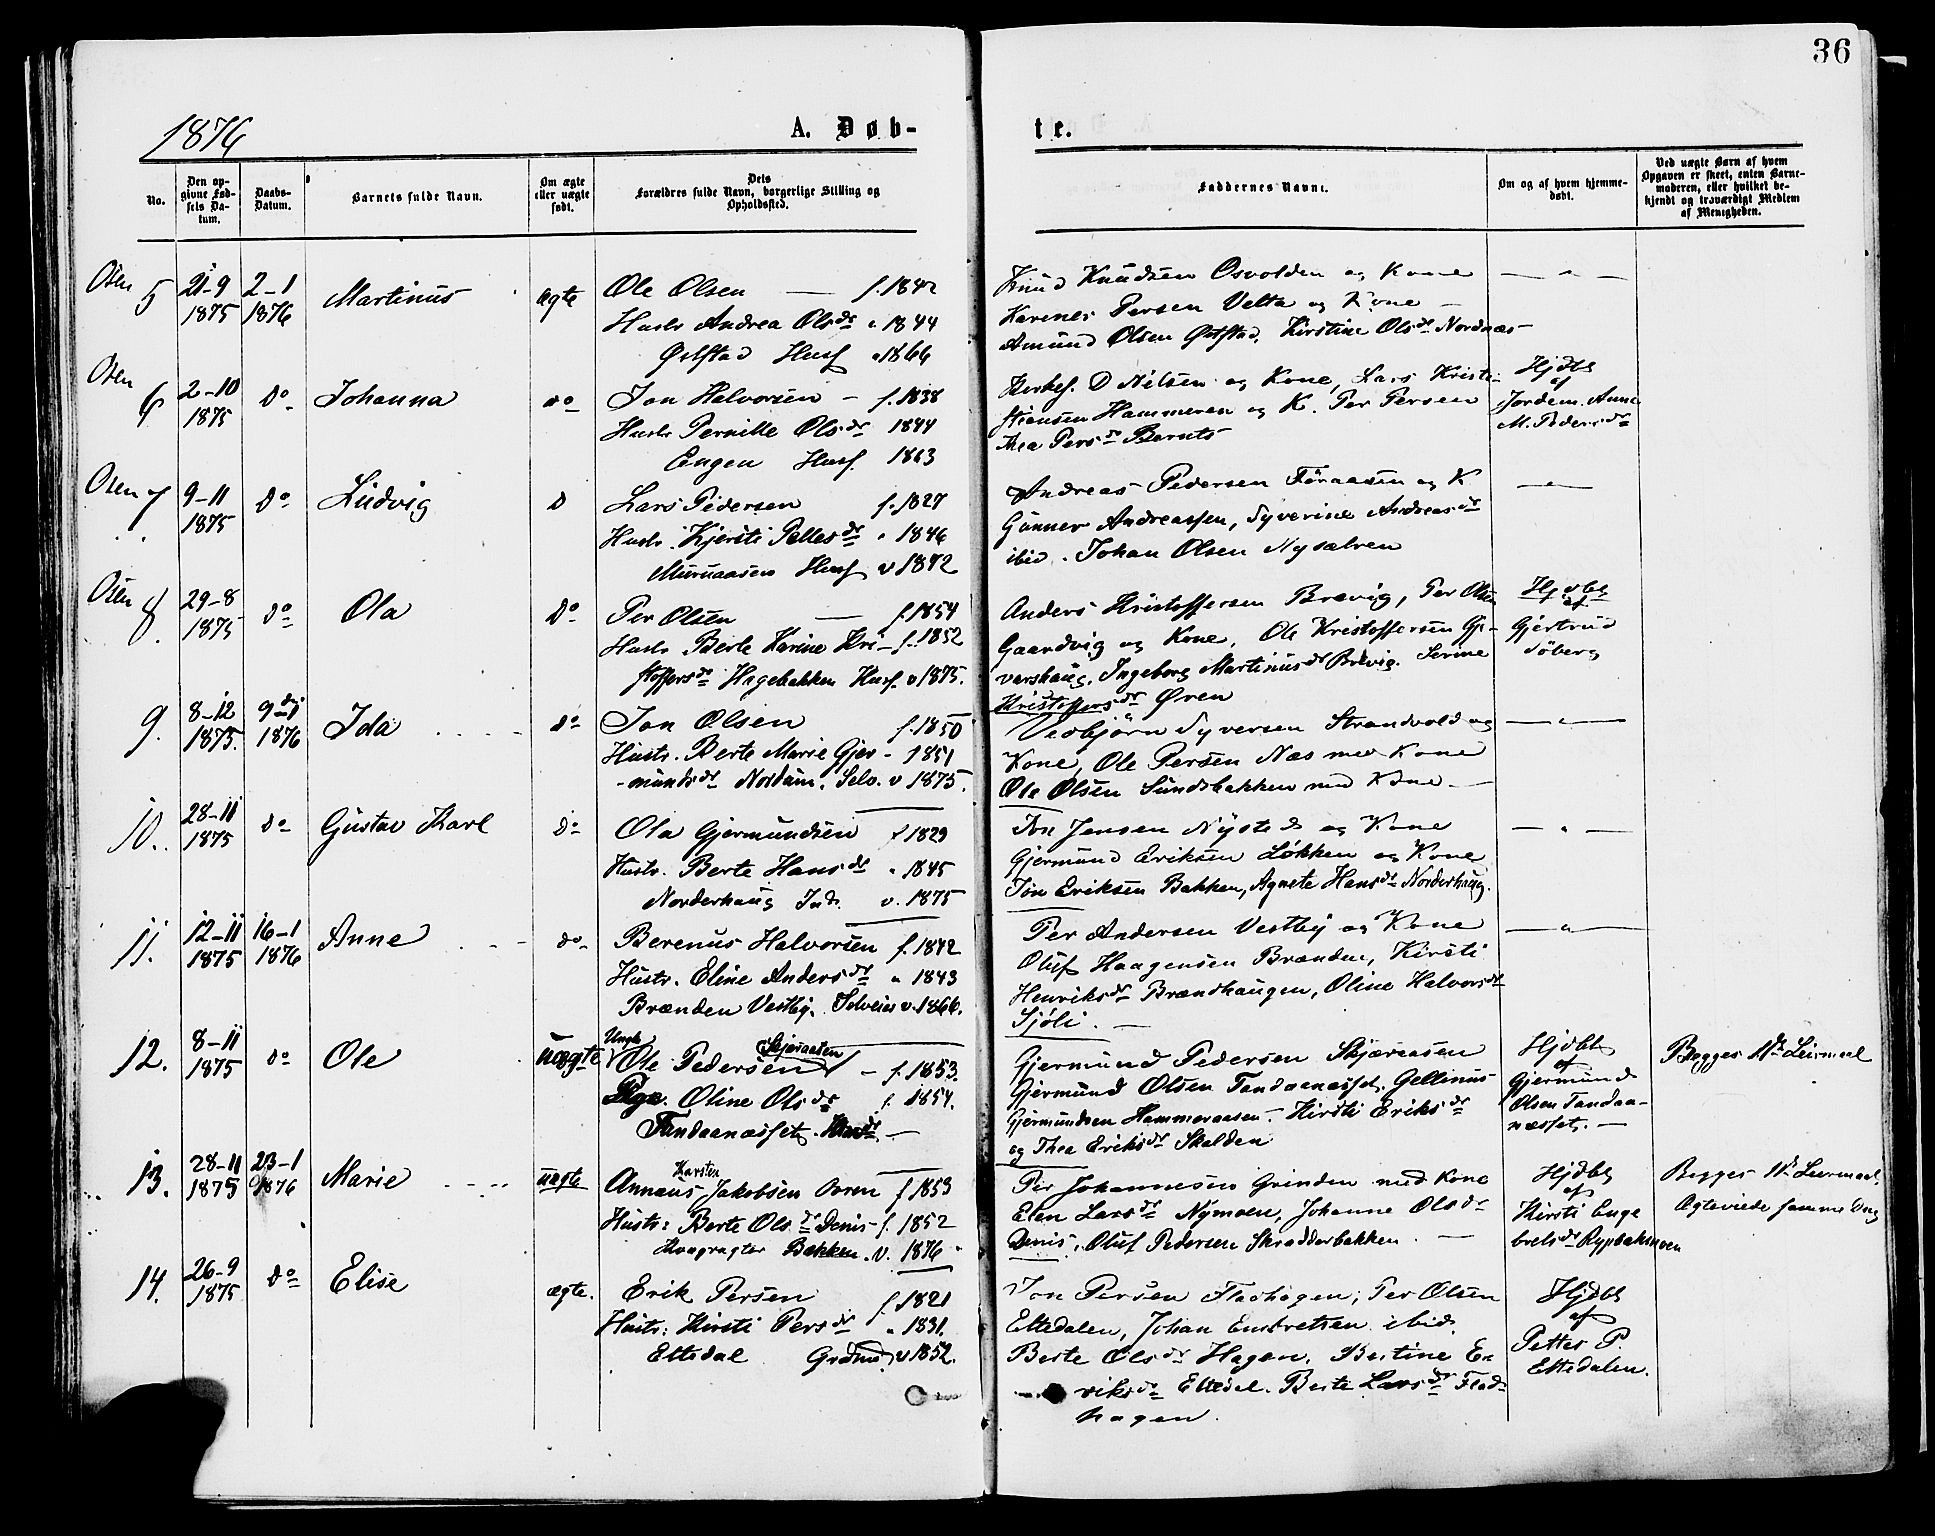 36
1876
A. Døb-
te.
No.
Den opgivne Fødsels Datum.
Daabs-Datum.
Barnets fulde Navn.
Om ægte eller uægte født.
Dets Forældres fulde Navn, borgerlige Stilling og Opholdssted.
Faddernes Navne.
Om og af hvem hjemmedøbt.
Ved uægte Børn af hvem Opgaven er skeet, enten Barnemoderen, eller hvilket bekjendt og troværdigt Medlem af Menigheden.
Osen 5 21-9 1875 2-1 1876 Martinus ægte
Ole Olsen — f. 1842
Hustr Andrea Olsdr " 1844
Øststad Husf " 1866
Knud Knudsen Osvolden og Kone
Karenes Persen Velta og Kone —
Amund Olsen Øststad, Kirstine Olsdr Nordnæs —
— " —
Osen 6 2-10 1875 do Johanna do
Jon Halvorsen — f. 1838
Hustr Pernille Olsdr 1844
Engen Husf. 1863
Kirkes. D Nilsen og Kone, Lars Kristi-
stiansen Hammeren og K. Per Persen
Thea Persdr Bernts
Hjdbt
af
Jordem. Anne
M. Pedersdr
Osen 7 9-11 1875 do Ludvig d
Lars Pedersen f. 1827
Hustr. Kjersti Pellesdr " 1846
Muruaasen Husf v 1872
Andreas Pedersen Føraasen og K
Gunner Andreassen, Syverine Andreasdr
ibid. Johan Olsen Nysætren
— " —
Osen 8. 29-8 1875 do Ola do
Per Olsen — f. 1854
Hustr Berte Karine Kri- f. 1852
stoffersdr Hagebakken Husf. v 1875.
Anders Kristoffersen Brævig, Per Olsen
Gaardvig og Kone, Ole Kristoffersen Gy-
varshaug, Ingeborg Martinusdr Brævig. Serine
Kristoffersdr Øren
Hjdbt
af
Gjertrud
Søberg
9. 8-12 1875. 9-1 1876 Ida do
Jon Olsen f. 1850
Hustr. Berte Marie Gjer- 1851
-mundsdr Nordum. Selv. v 1875.
Vebbjørn Syversen Strandvold og
Kone, Ole Persen Næs med Kone
Ole Olsen Sundsbakken med Kone —
— " —
10. 28-11 1875 do Gustav Karl do
Ola Gjermundsen f 1829
Hustr. Berte Hansdr " 1845
Norderhaug Ind. v. 1875
Jon Jensen Nysted og Kone
Gjermund Eriksen Løkken og Kone
Jon Eriksen Bakken, Agnete Hansdr Norderhaug.
— " —
11. 12-11 1875 16-1 1876 Anne do
Berenus Halvorsen f. 1842
Hustr. Eline Andersdr " 1843
Brænden Vestby. Selveier v. 1866.
Per Andersen Vestby og Kone
Oluf Haagensen Brænden, Kirsti
Henriksdr Brændhaugen, Oline Halvorsdr
Sjøli. —
— " —
12. 8-11 1875 do Ole uægte
Ungk
Skjæraasen
Ole Pedersen — f. 1853.
Pige. Oline Olsdr f. 1854.
Tandaanæsset. —
Gjermund Pedersen Skjæraasen
Gjermund Olsen Tandaanæsset, Gellinus
Gjermundsen Hammeraasen. — Kirsti Eriksdr
og Thea Eriksdr Skalden
Hjdbt
af
Gjermund
Olsen Tandaa-
næsset. —
Begges 1ste Leiermaal
13. 28-11 1875 23-1 1876 Marie uægte
Karsten
Annæus Jakobsen Ooren f 1853
Hustr: Berte Olsdr Denis- f. 1852
Bakken. v. 1876
Per Johannesen Grinden med Kone
Elen Larsdr Nymoen, Johanne Olsdr
Denis, Oluf Pedersen Skradderbakken. —
Hjdbt
af
Kirsti Enge
bretsdr Rypbakmoen
Begges 1ste Leiermaal.
Ægteviede samme Dag
14. 26-9 1875 do Elise ægte.
Erik Persen f. 1821
Hustr: Kirsti Persdr " 1831.
Ettedal Grdmd v 1852.
Jon Persen Fladhagen, Per Olsen
Ettedalen, Johan Embretsen ibid.
Berte Olsdr Hagen. Bertine E-
riksdr Ettedal. Berte Larsdr Flad-
hagen.
Hjdbt
af
Petter P.
Ettedalen.